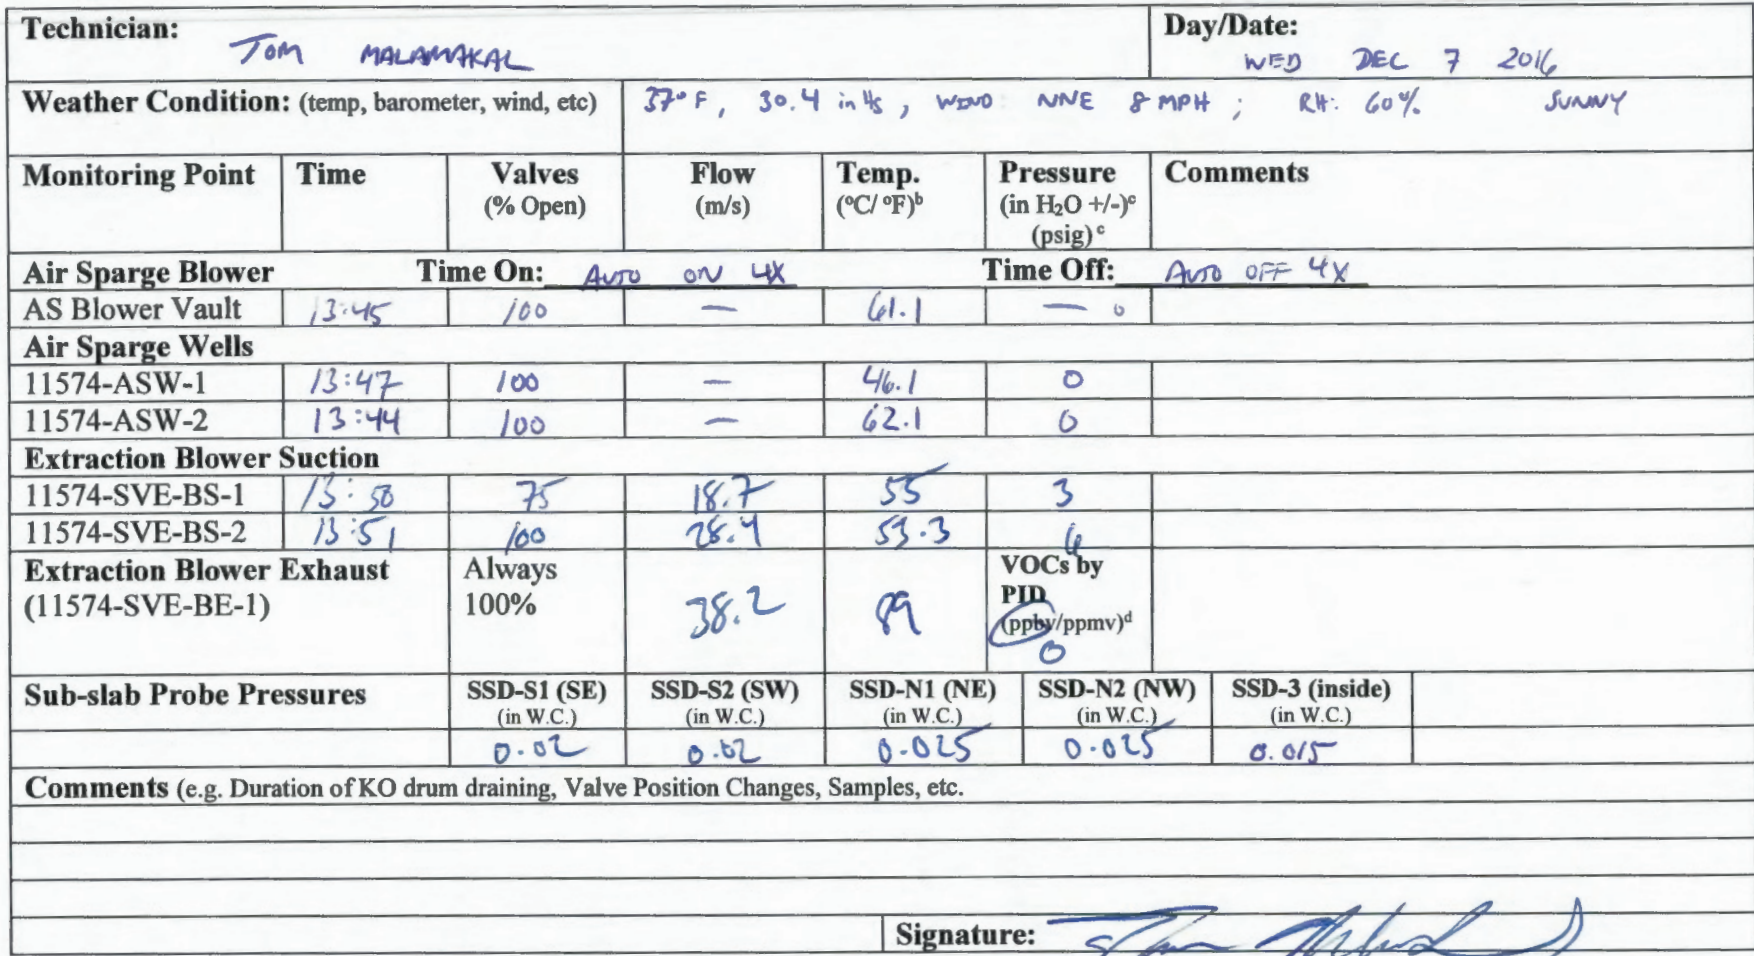 Technician: TOM MALAMAKAL Day/Date: WED DEC 7 2016
Weather Condition: (temp, barometer, wind, etc) 37°F, 30.4 in Hg, WIND NNE 8 MPH ; RH: 60% SUNNY
Monitoring Point Time Valves Flow Temp. Pressure Comments
(% Open) (m/s) (°C/ °F)ᵇ (in H₂O +/-)ᶜ
(psig) ᶜ
Air Sparge Blower Time On: AUTO ON 4X Time Off: AUTO OFF 4X
AS Blower Vault 13:45 100 — 61.1 — 0
Air Sparge Wells
11574-ASW-1 13:47 100 — 46.1 0
11574-ASW-2 13:44 100 — 62.1 0
Extraction Blower Suction
11574-SVE-BS-1 13:50 75 18.7 55 3
11574-SVE-BS-2 13:51 100 28.4 53.3 6
Extraction Blower Exhaust Always VOCs by
(11574-SVE-BE-1) 100% 38.2 89 PID
(ppbv/ppmv)ᵈ
0
Sub-slab Probe Pressures SSD-S1 (SE) SSD-S2 (SW) SSD-N1 (NE) SSD-N2 (NW) SSD-3 (inside)
(in W.C.) (in W.C.) (in W.C.) (in W.C.) (in W.C.)
0.02 0.02 0.025 0.025 0.015
Comments (e.g. Duration of KO drum draining, Valve Position Changes, Samples, etc.
Signature: